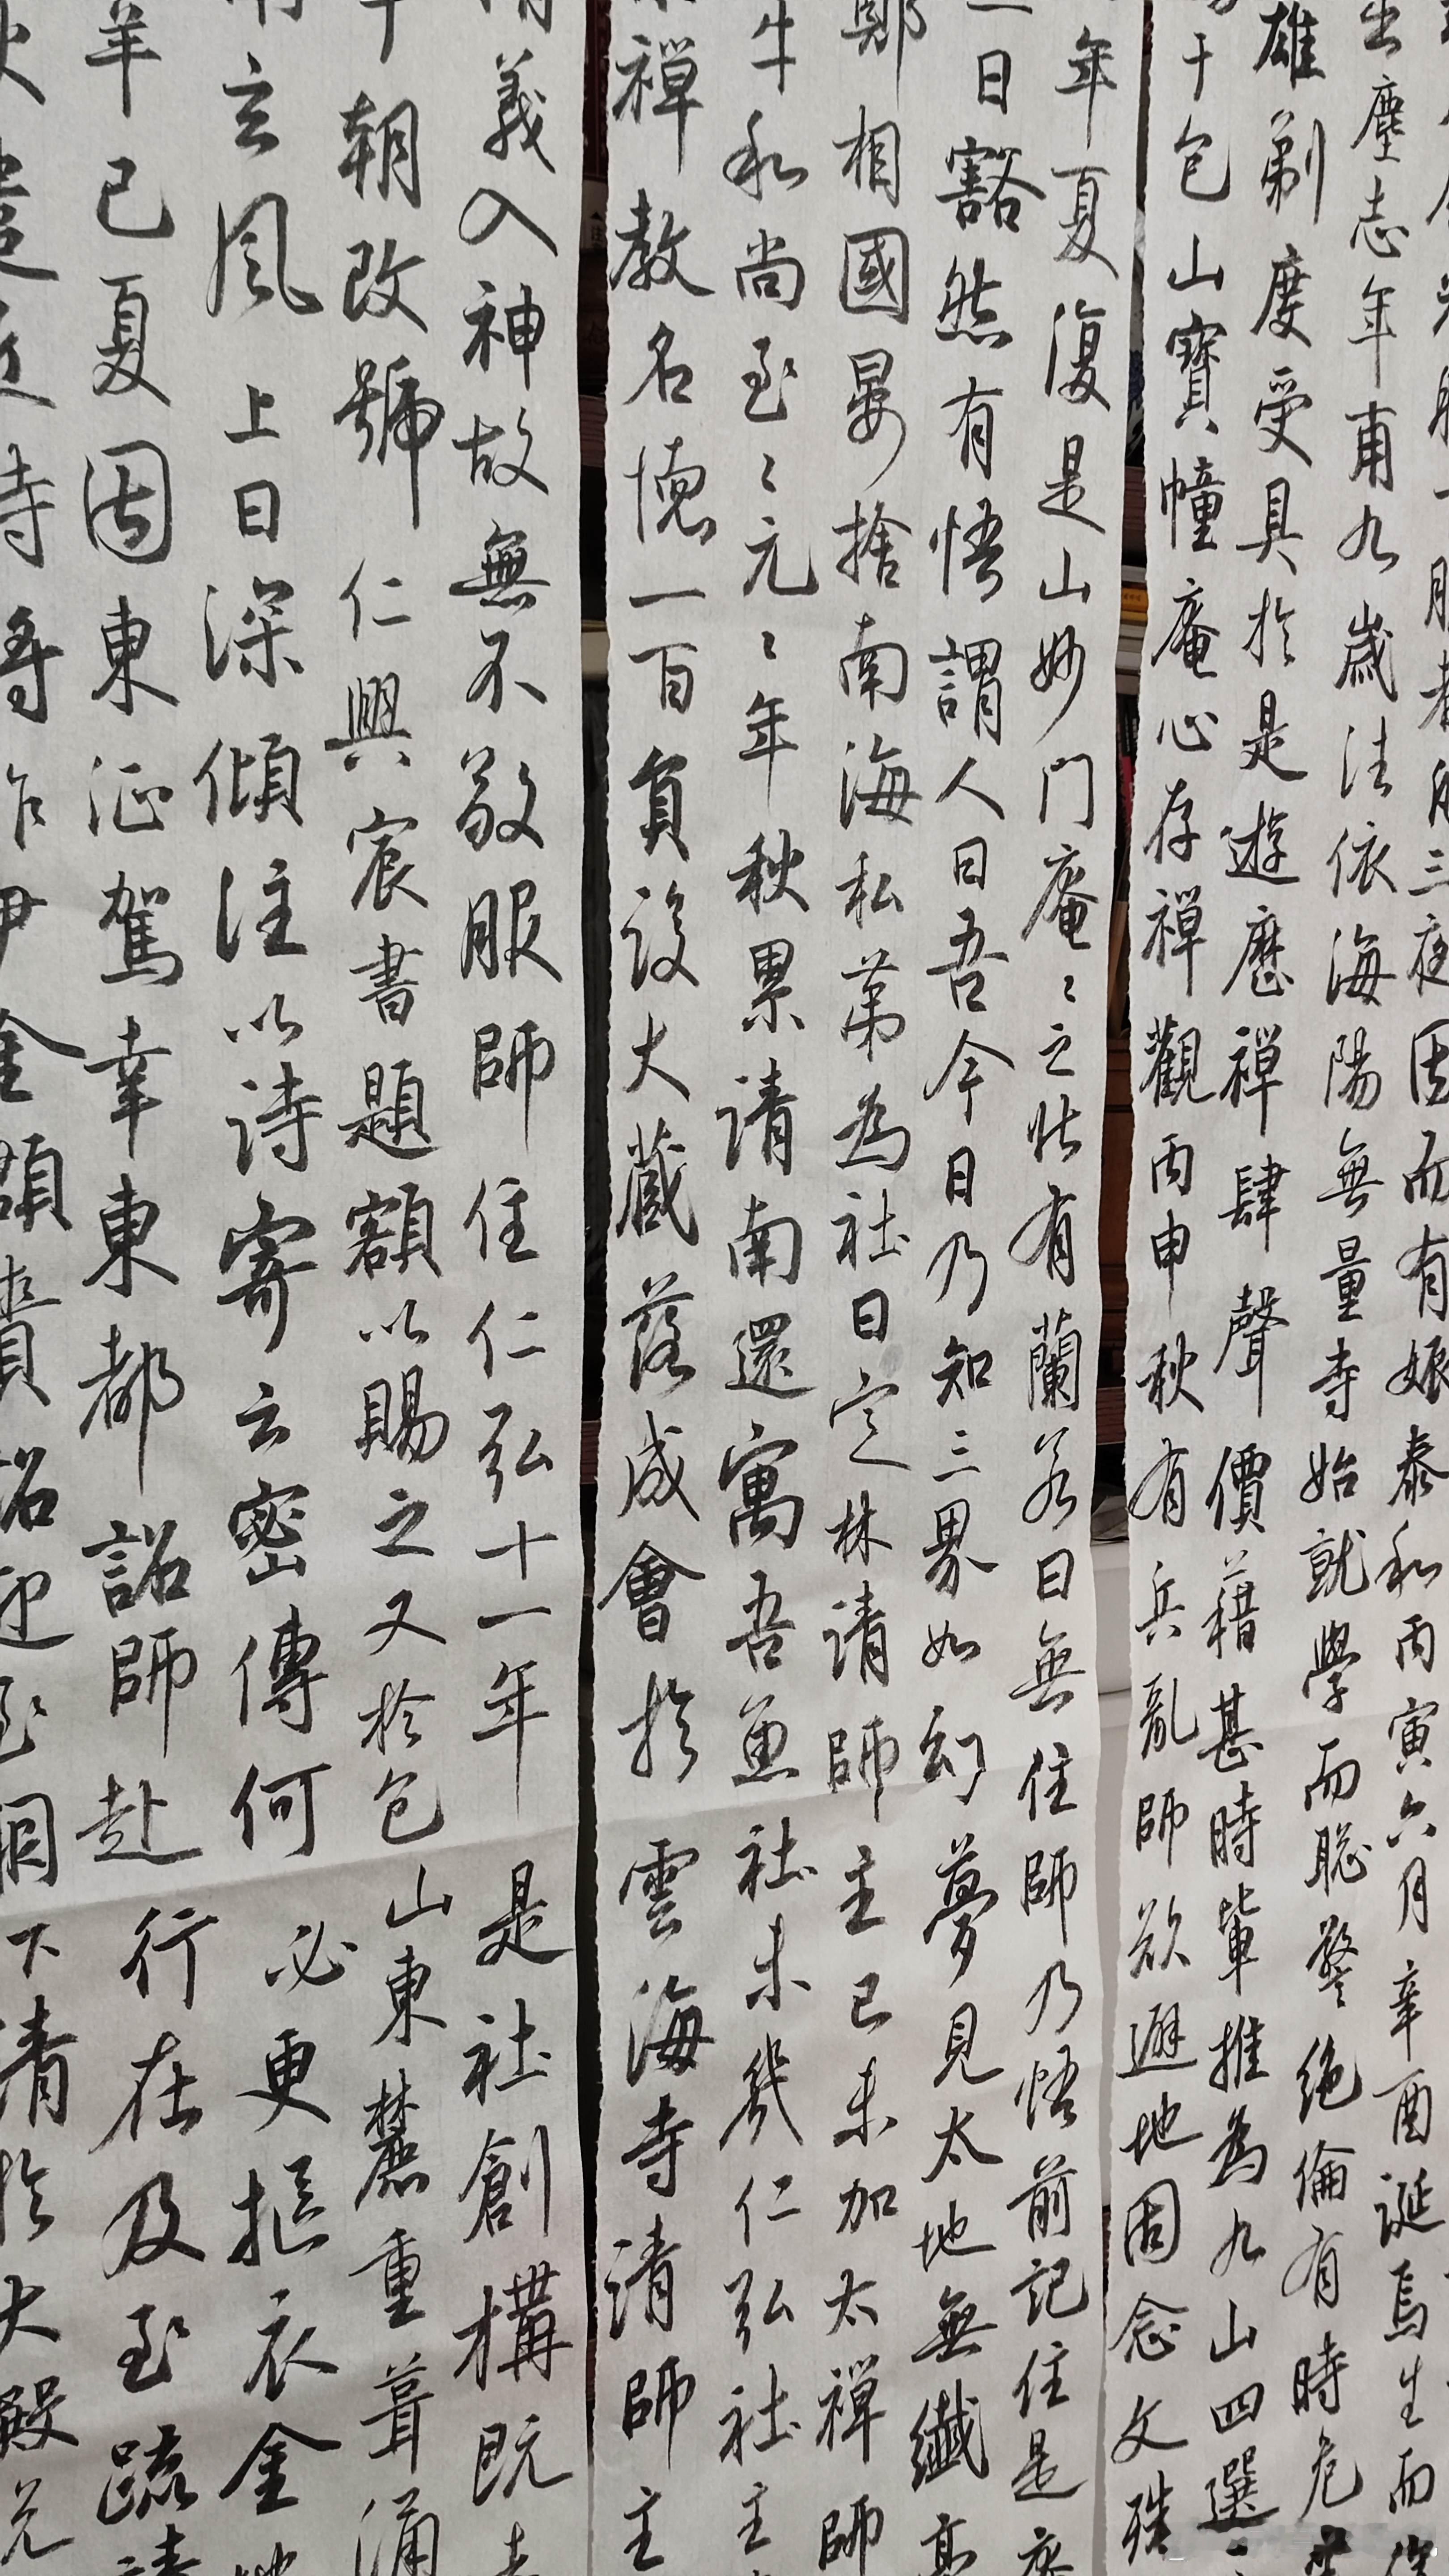 因而有娠泰和丙寅六月辛酉誕焉生而
出塵志年甫九歲法依海陽無量寺始就學而聡警絶倫有時危
雄剃度受具於是遊歷禪肆聲價藉甚時輩推為九山四選
于包山寶幢庵心存禪觀丙申秋有兵亂師欲避地因念文殊
年夏復是山妙門庵〻之北有蘭若曰無住師乃悟前記住是庵
一日豁然有悟謂人曰吾今日乃知三界如幻夢見大地無纖毫
鄭相國晏捨南海私第為社曰定林請師主之己未加大禪師
牛和尚至〻元〻年秋累請南還寓吾魚社未幾仁弘社主
禪教名德一百員設大藏落成會於雲海寺請師主
義入神故無不敬服師住仁弘十一年是社創構既
朝改號仁興宸書題額以賜之又於包山東麓重葺
玄風上日深傾注以詩寄云密傳何必更摳衣金
羊已夏因東征駕幸東都詔師赴行在及至疏
寺
詔迎至闕下請於大殿